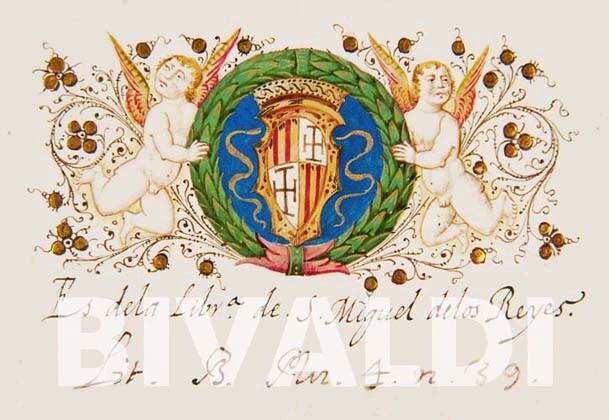 Es dela Libr.ª de. S. Miguel delos Reyes.
BIVALDI
Lit. B. Plu. 4. n. 39.